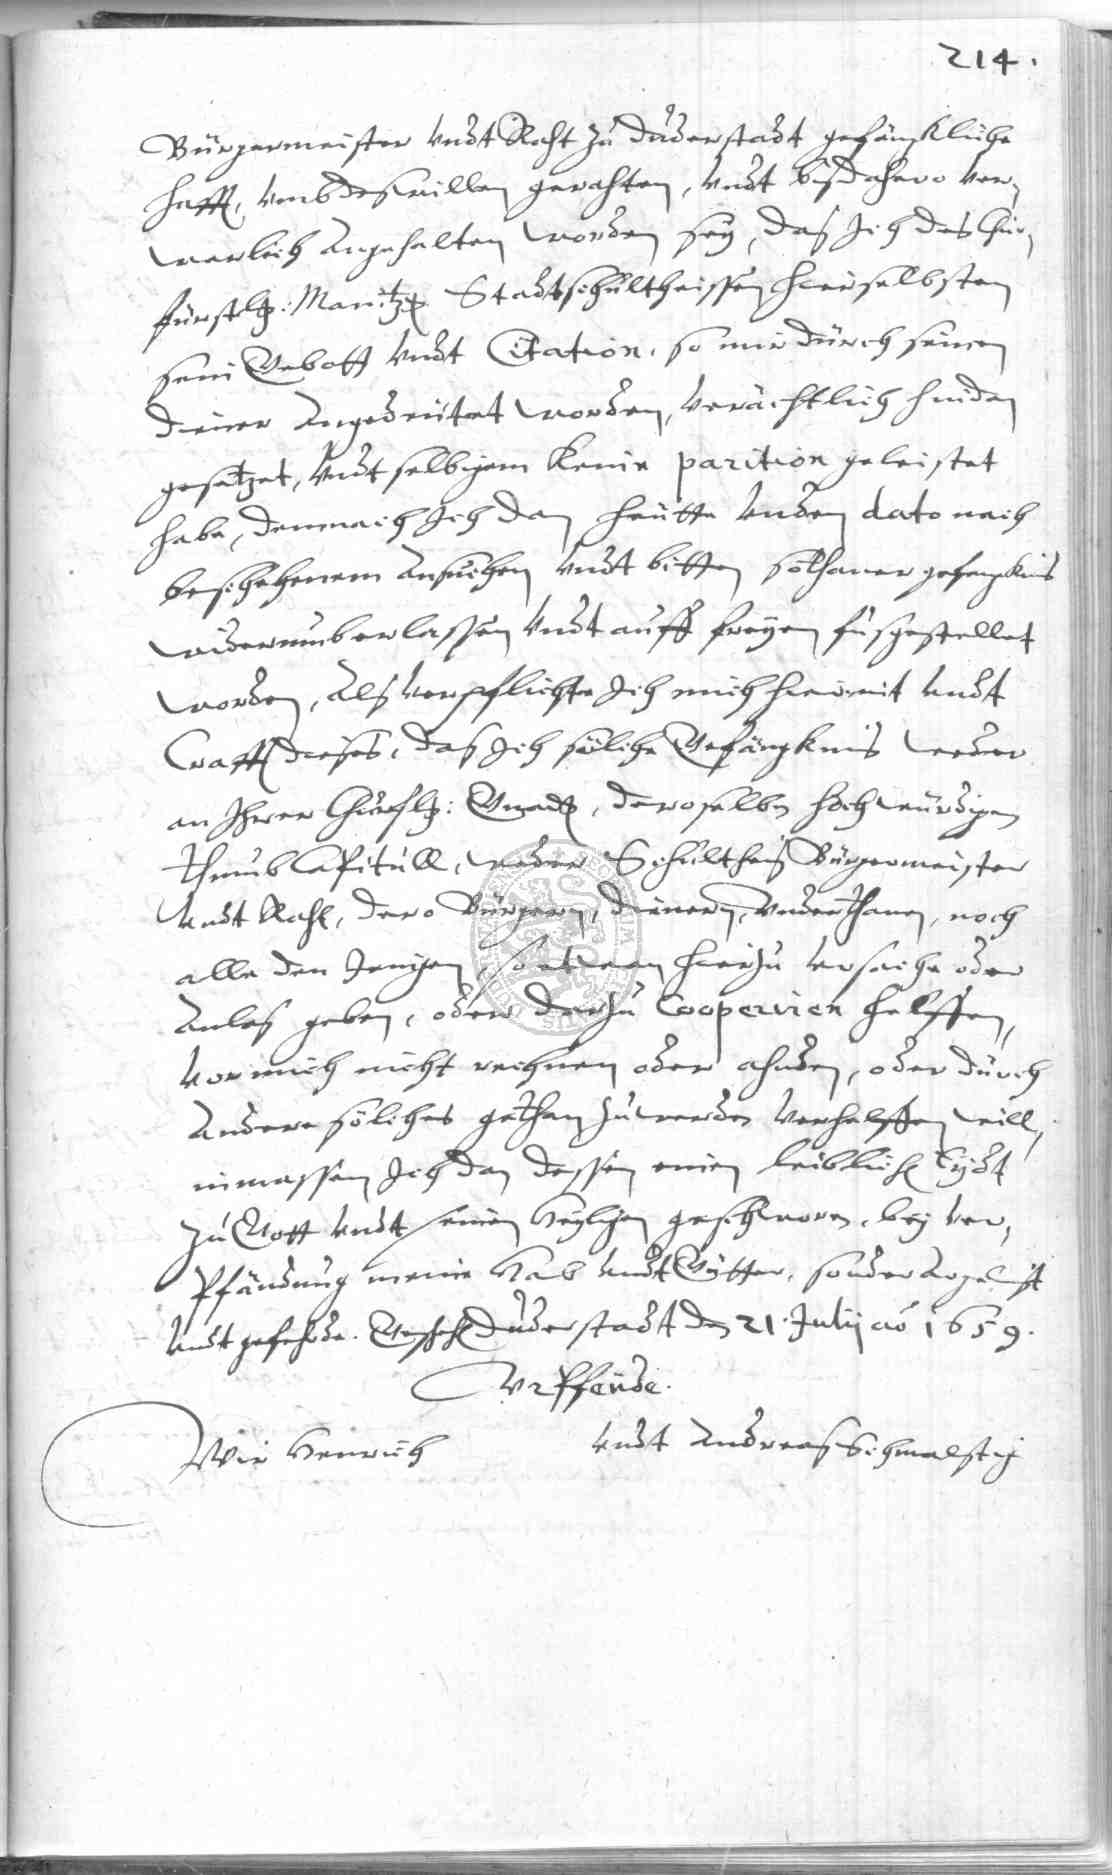 214.
Bürgermeister undt Raht zu Duderstadt gefängkliche
hafft, umbdeswillen gerahten, undt bisdahero ver,
warlich Angehalten worden sey, das Ich des Chur,
fürstlh: Maintzh Stadtschultheissen hierselbsten
sein Gebott undt Citation, so mir durch seinen
diener Angedeutet worden, verächtlich hinden
gesatzet, undt selbigem keine parition geleistet
habe, demnach Ich dan heutte unden dato nach
beschehenem Ansuchen undt bitten solhaner gefengknis
widerumb erlassen undt auff freyen fus gestellet
worden, Als verpflichte Ich mich hiermit undt
Crafft dieses, das Ich solche Gefängknis weder
an Ihrer Churflh: Gnadh, deroselben Hochwürdigen
Thumb Capitull, weder Schultheis Bürgermeister
undt Raht, dero Bürgern, dienern, Underthanen, noch
alle den Jenigen, so etwan hierzu Ursache oder
Anlas geben, oder darzu Cooperiren helffen,
vor mich nicht rechnen oder ahnden, oder durch
Andere solches gethan zuwerden verhelffen will,
inmassen Ich dan dessen einen leiblich Eydt
zu Gott undt seinen Heyligen geschworen, bey ver,
Pfändung meine Hab undt Gütter, sonder Argelist
undt gefehrde. Duderstadt den 21. Julij ao 1659.
UrPfeude.
Wir Henrich undt Andreas Schmalstig